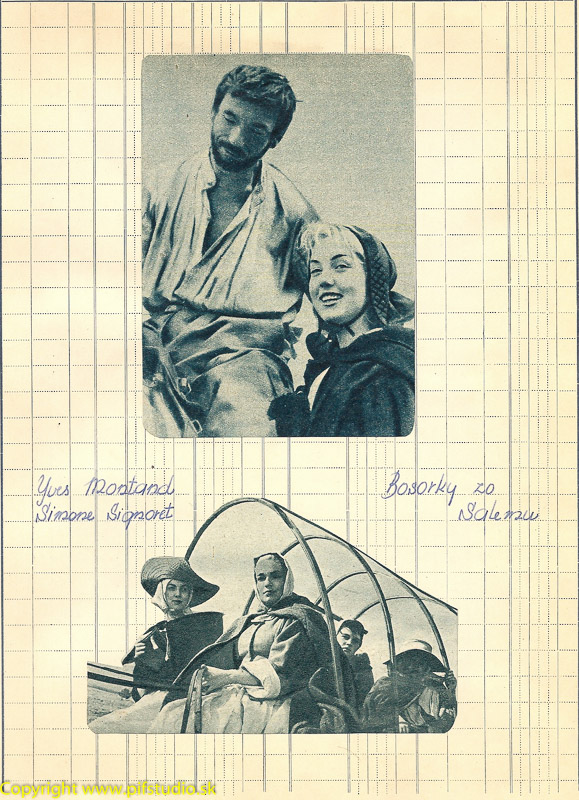 Yves Montand
Simone Signoret
Bosorky zo
Salemu
Copyright www.pifstudio.sk